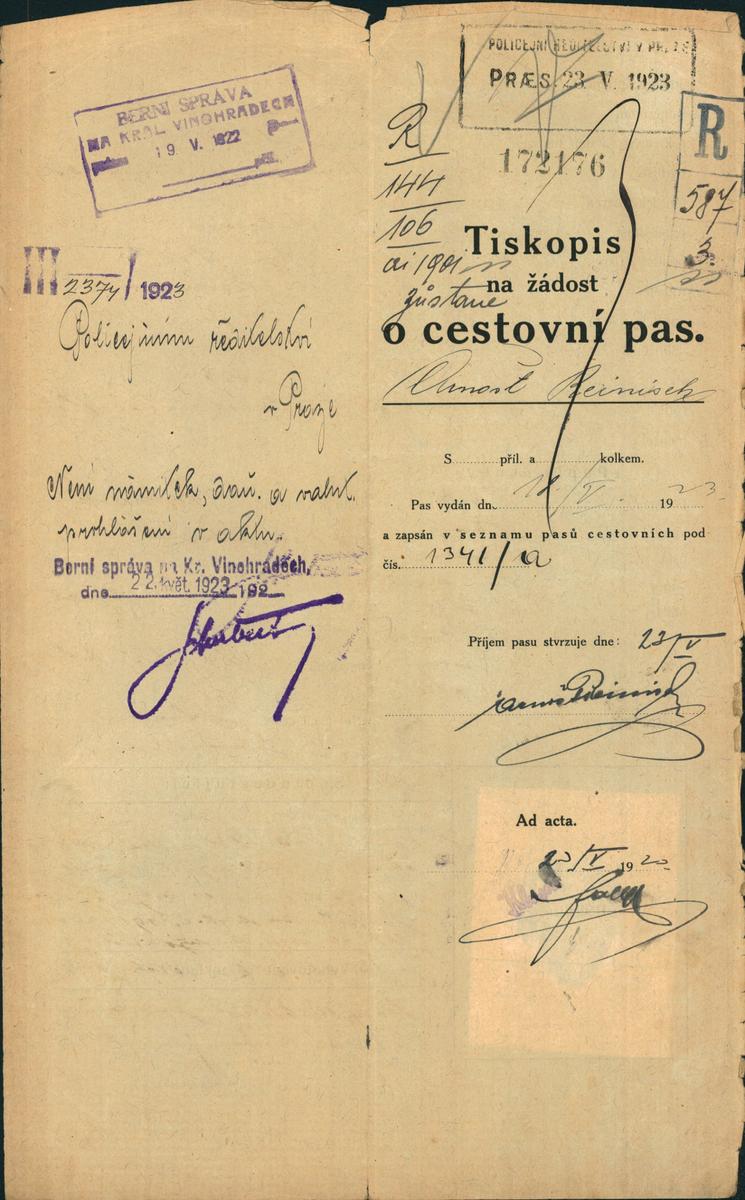 BERNI SPRÁVA
NA KRÁL. VINOHRADECH
19 V. 1922
III 2374/1923
Policejnímu ředitelství
v Praze
Není námitek, daň. a valut.
prohlášení v aktu.
Berní správa na Kr. Vinohradech,
dne 22. květ 1923 192
POLICEJNÍ ŘEDITELSTVÍ V PRAZE
PRÆS. 23 V. 1923
172176
R
144
106
ai 1901
zůstane
R
587
3.
Tiskopis
na žádost
o cestovní pas.
Arnošt Reinisch
S příl. a kolkem.
Pas vydán dn. V. 1923
a zapsán v seznamu pasů cestovních pod
čís. 1341/a
Příjem pasu stvrzuje dne: 23/V
Arnošt Reinisch
Ad acta.
23/V 1923